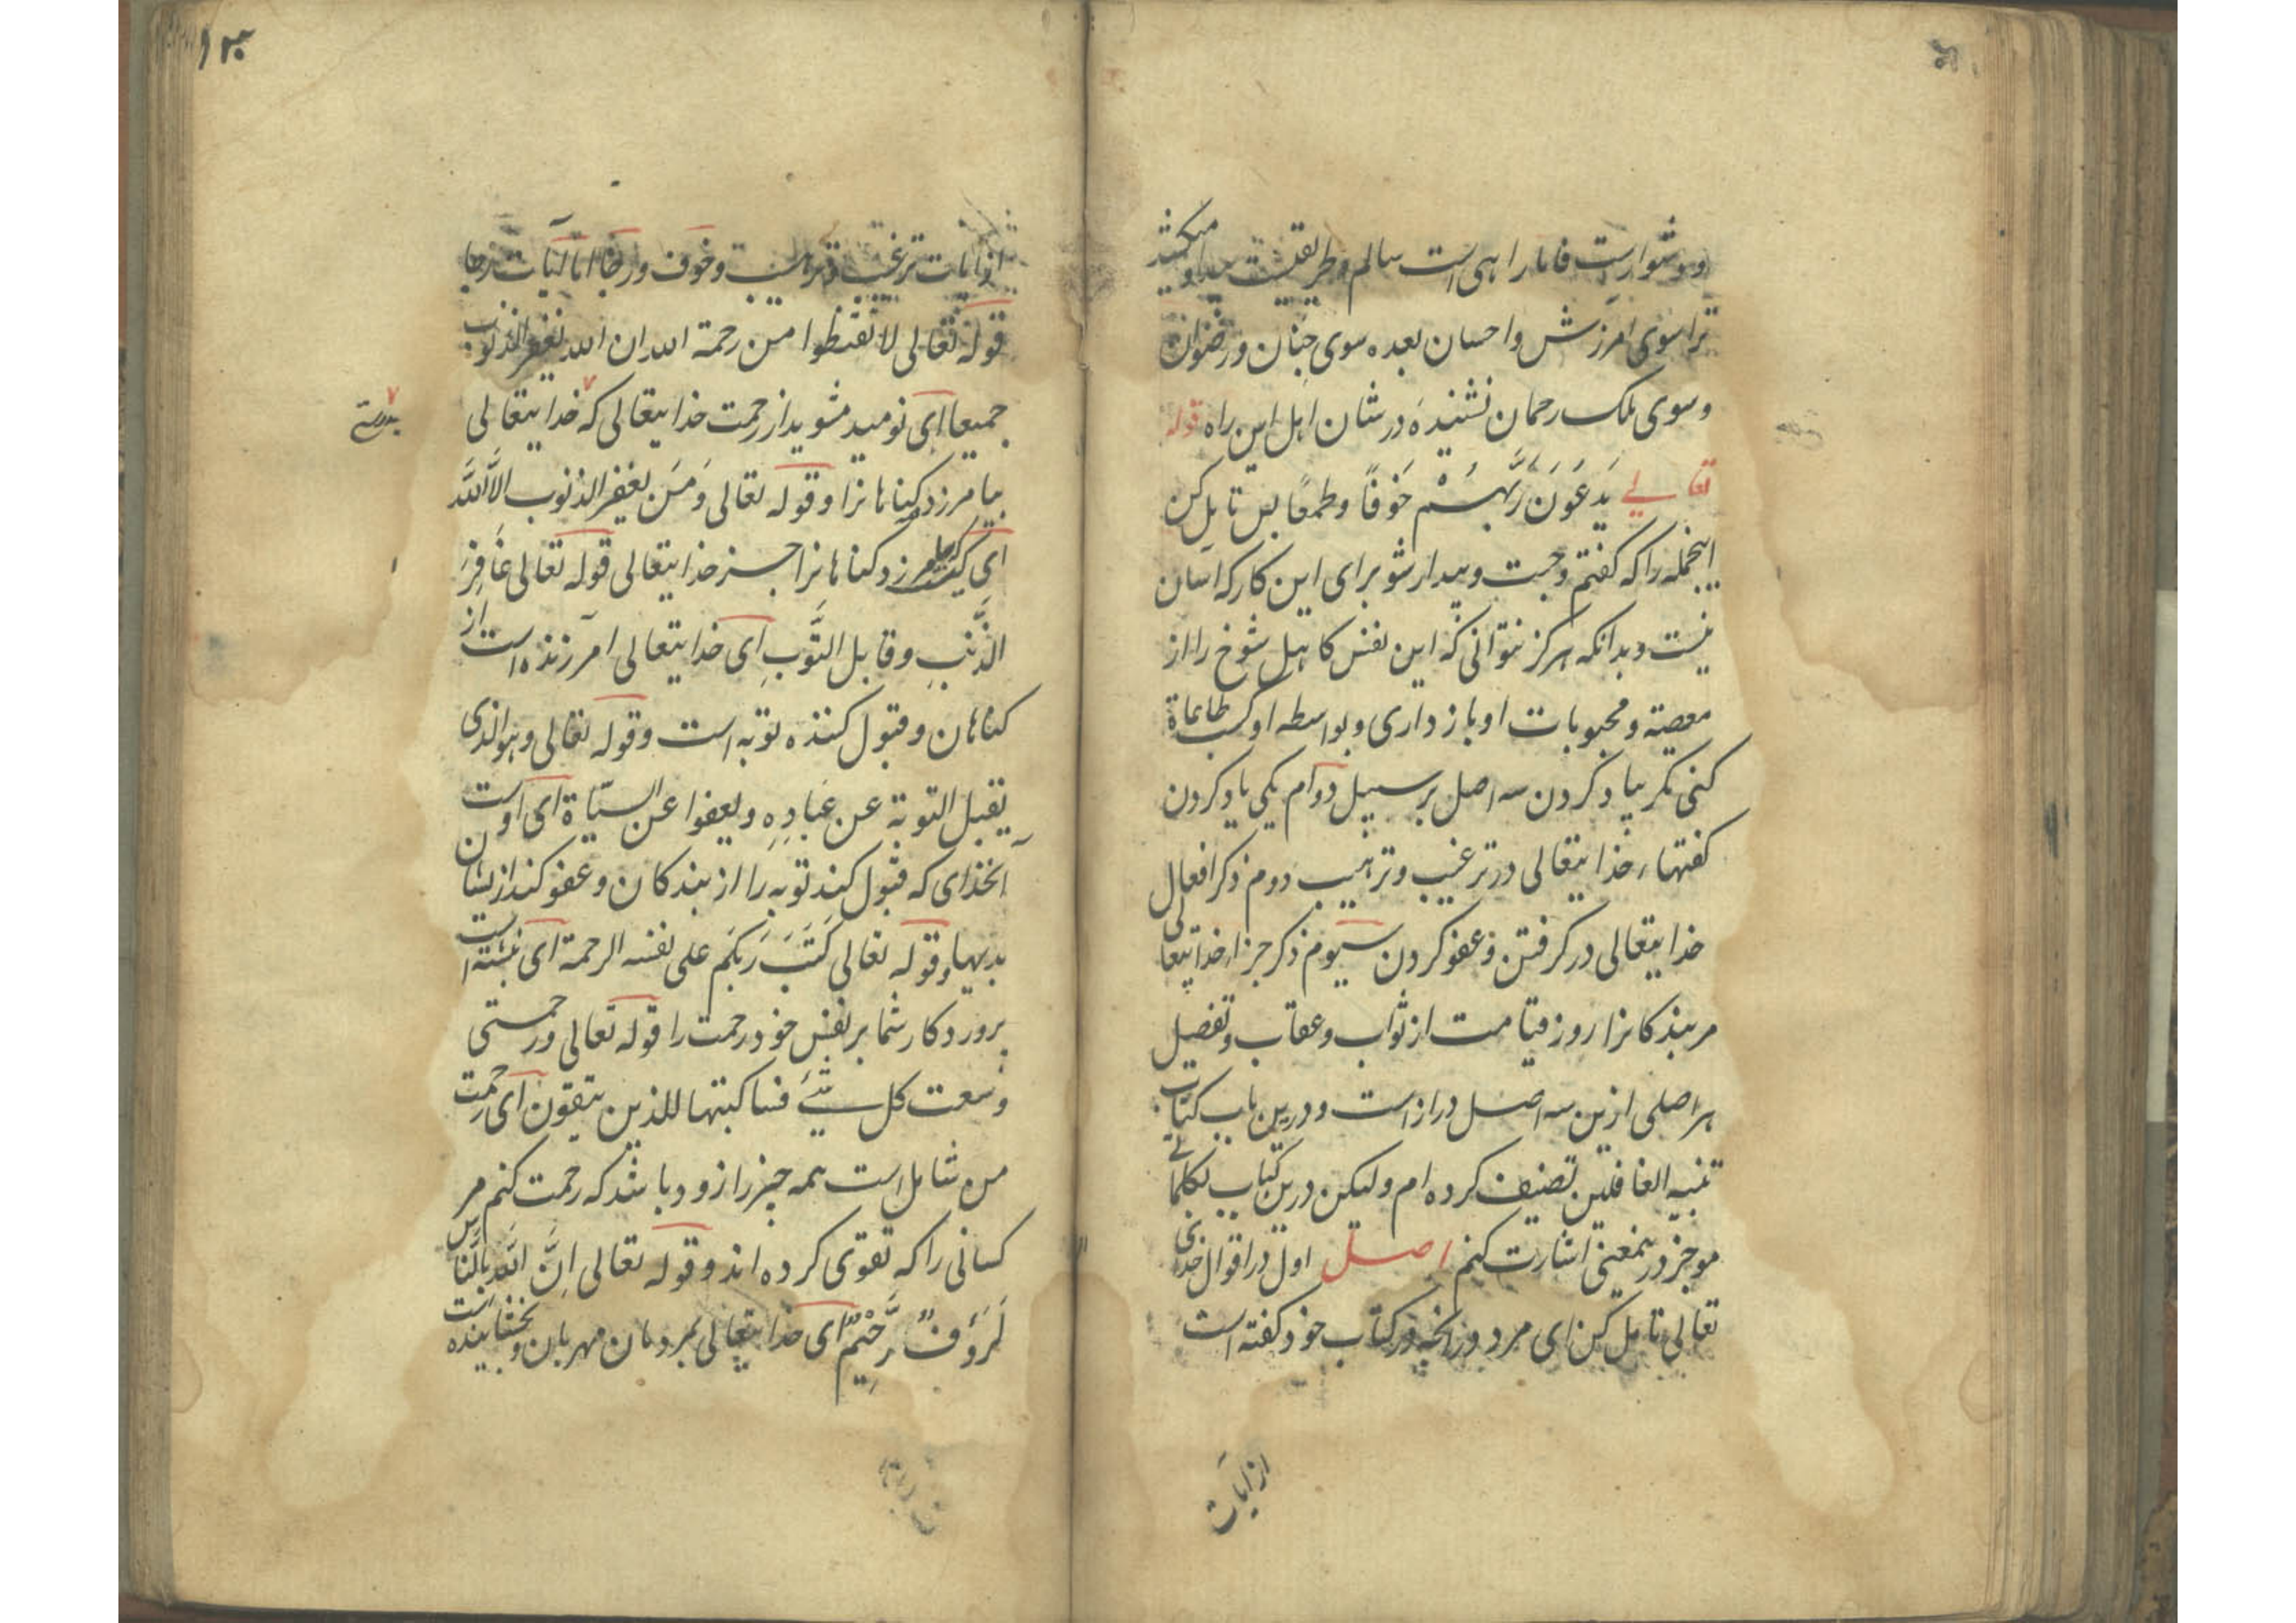 ودشوارست فاما راهی است سالم وطریقیست میکشد
ترا سوی آمرزش واحسان بعده سوی جنان ورضوان
وسوی ملک رحمان نشنیدهٔ در شان اهل این راه قوله
تعالی یَدعُونَ رَبَّهُمْ خَوفًا وطمعًا پس تامل کن
اینجمله را که گفتم وجست وبیدار شو برای این کار که آسان
نیست وبدانکه هرگز نتوانی که این نفس کاهل شوخ را از
معصیة ومحبوبات او باز داری وبواسطه او کسب طاعاة
کنی مکر بیاد کردن سه اصل بر سبیل دوام یکی یاد کردن
کفتهاء خدایتعالی در ترغیب وترهیب دوم ذکر افعال
خدایتعالی در کرفتن وعفو کردن سیوم ذکر جزاء خدایتعالی
مر بندکانرا روز قیامت از ثواب وعقاب وتفصیل
هر اصلی ازین سه اصل دراز است ودرین باب کتاب
تنبیه الغافلین تصنیف کرده ام ولیکن درین کتاب بکلماتی
موجز درینمعنی اشارت کنم اصل اول در اقوال خدای
تعالی تامل کن ای مرد در آنچه در کتاب خود کفته است
از آیات
۱۲۳
از آیات ترغیب وترهیب وخوف ورجا اما آیات رجا
قوله تعالی لا تقنطوا من رحمة الله ان الله یغفر الذنوب
جمیعا ای نومید مشوید از رحمت خدایتعالی که خدایتعالی
بدرستی
بیامرزد کناهانرا وقوله تعالی وَمَن یغفر الذنوب الاالله
ای که بیامرزد کناهانرا جز خدایتعالی قوله تعالی غَافِرَ
الذَّنبِ وقابل التَّوبِ ای خدایتعالی آمرزنده است از
کناهان وقبول کننده توبه است وقوله تعالی وهو الذی
یقبل التوبة عن عبادِهِ ویعفوا عن السیّاة ای اوست
آنخدای که قبول کند توبه را از بندکان وعفو کند از یشان
بدیها وقوله تعالی کَتَبَ رَبکم علی نفسه الرحمة ای نبشته است
پروردکار شما بر نفس خود رحمت را قوله تعالی ورحمتی
وسعت کل شیئ فساکتبها للذین یتقون ای رحمت
من شامل است همه چیز را زود باشد که رحمت کنم مر
کسانی را که تقوی کرده اند وقوله تعالی اِنَّ الله بالنَّاس
لَرَؤفٌ رَّحِیْمٌ ای خدایتعالی بمردمان مهربان وبخشاینده است